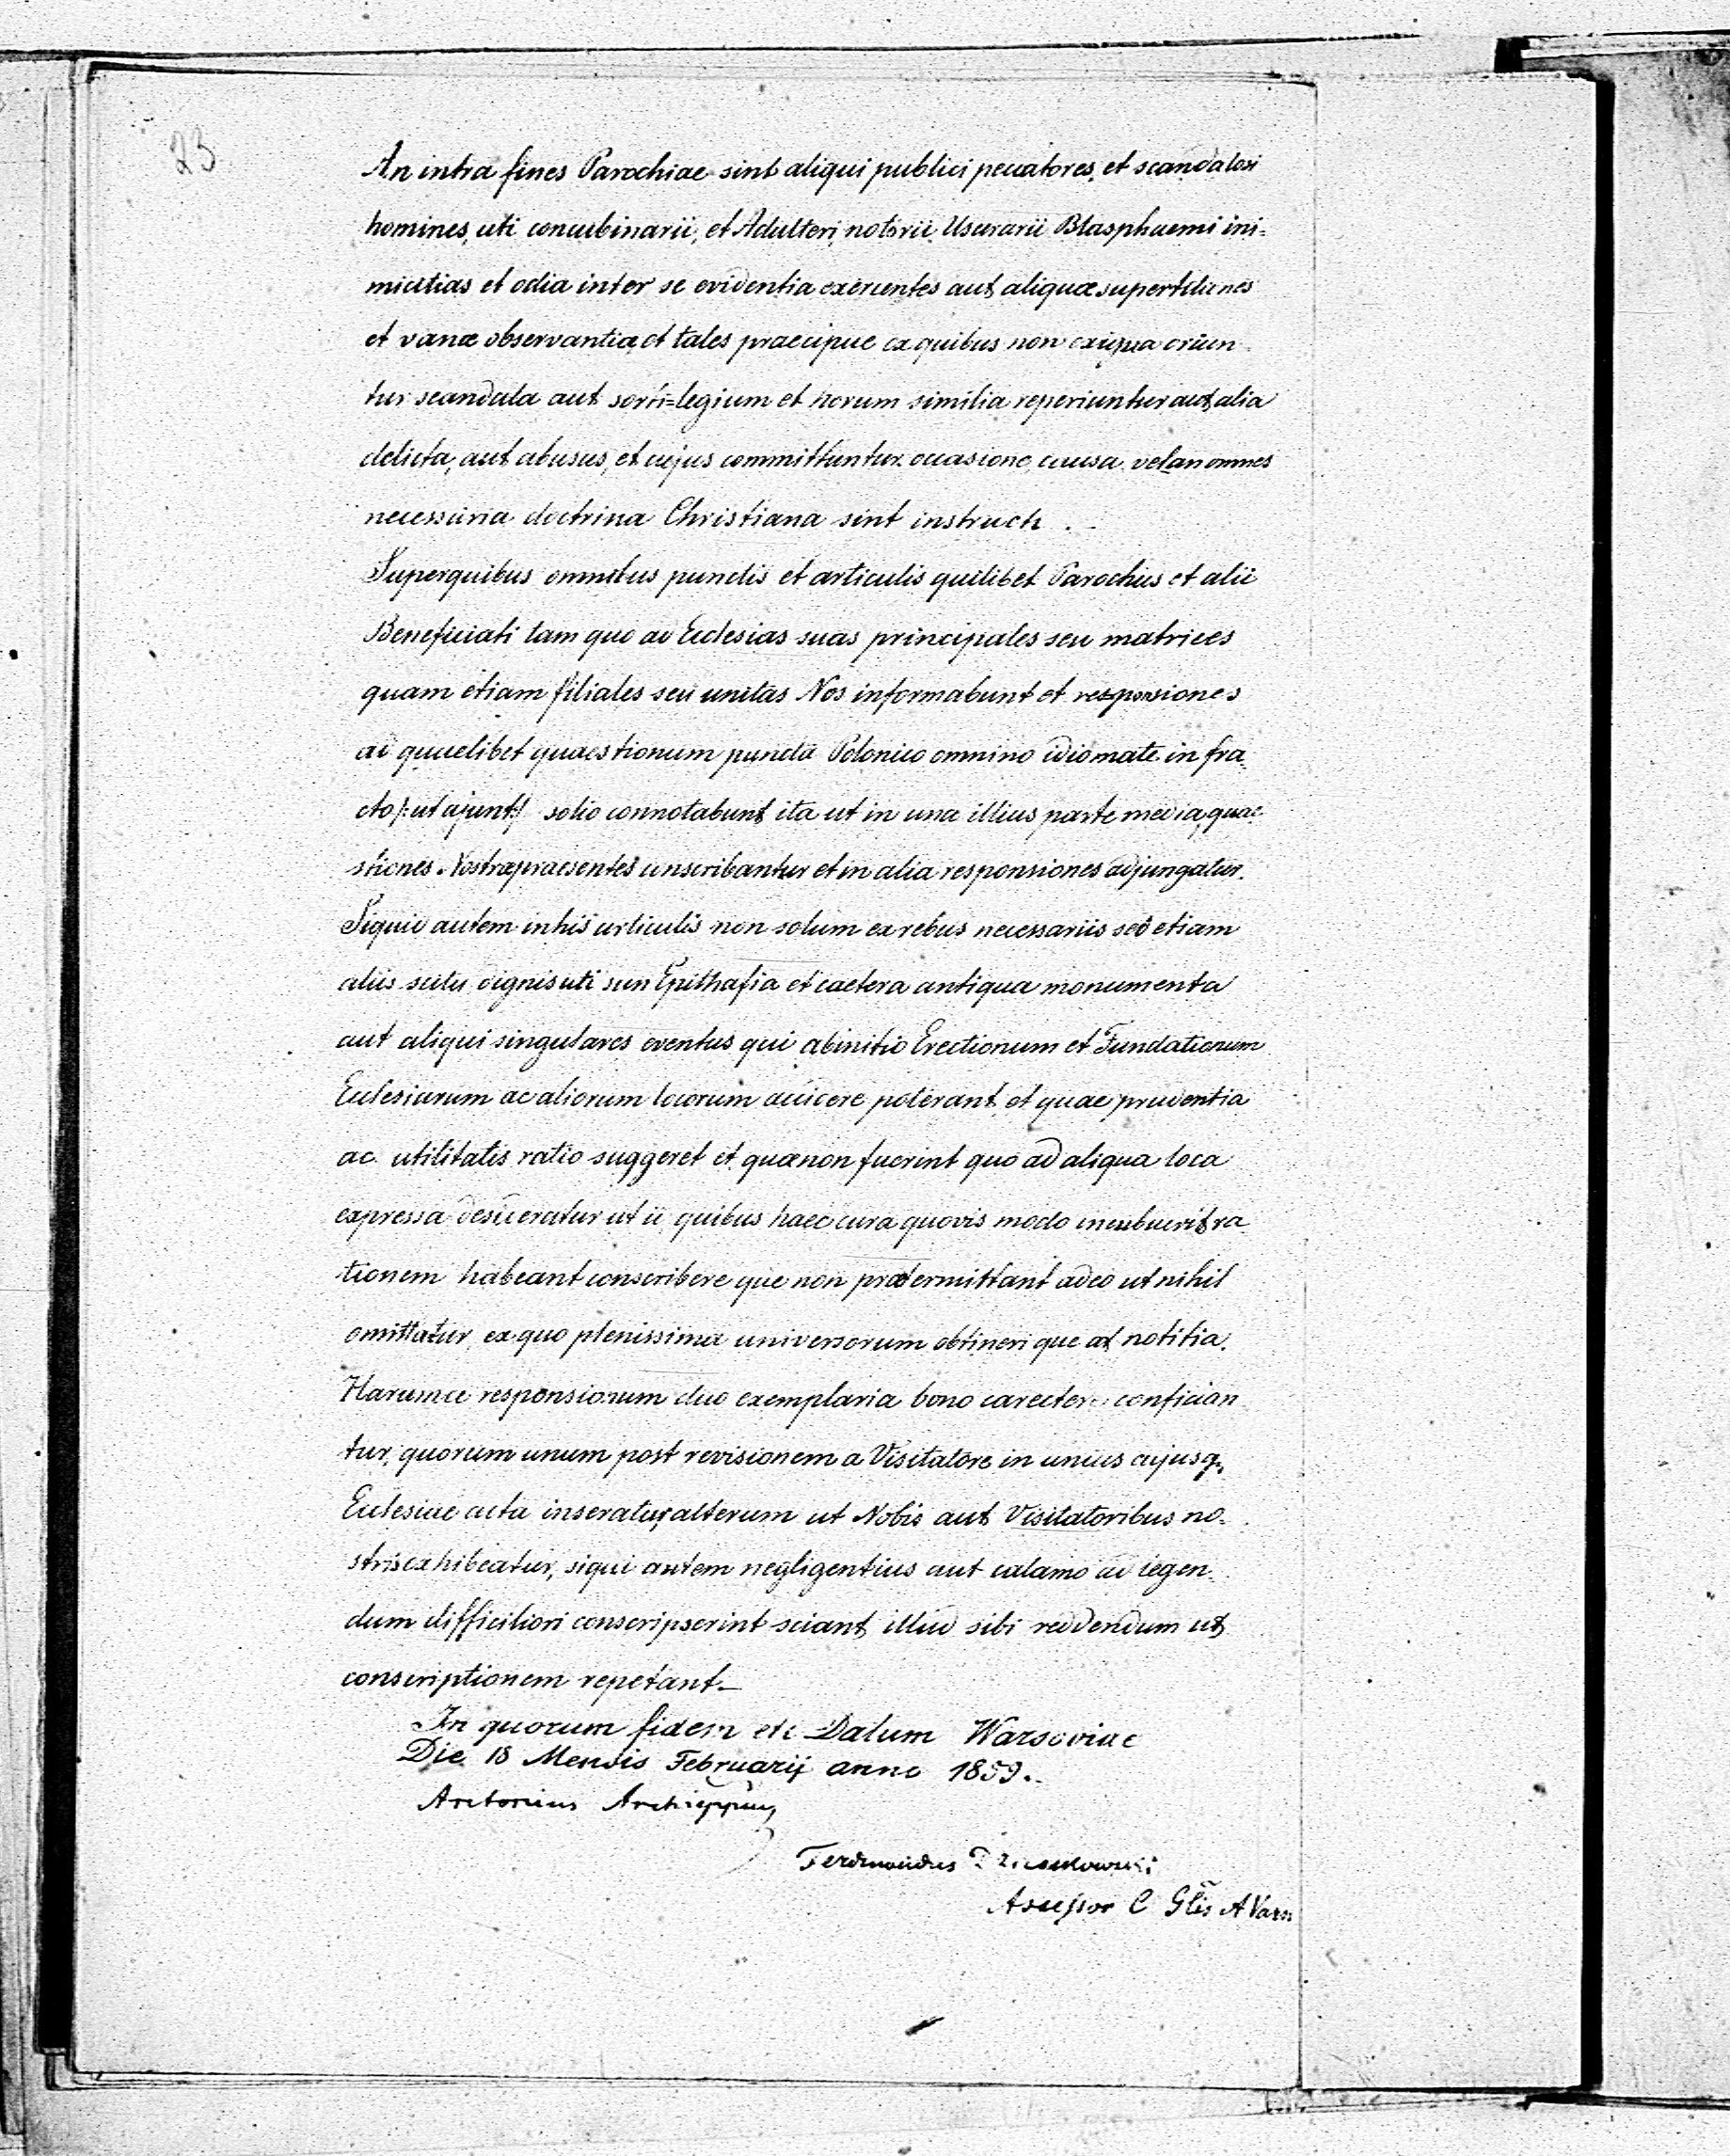 23
An intra fines Parochiae sint aliqui publici peccatores, et scandalosi
homines, uti concubinarii, et Adulteri, notorii Usurarii Blasphaemi ini=
micitias et odia inter se evidentia exercentes aut aliquæ supertitiones
et vanæ observantiæ et tales praecipue ex quibus non exiqua oriun
tur scandala aut sorti=legium et horum similia reperiuntur aut alia
delicta, aut abusus, et cujus committuntur occasione, causa, vel an omnes
necessaria doctrina Christiana sint instructi.
Superquibus omnibus punctis et articulis quilibet Parochus et alii
Beneficiati tam quo ad Ecclesias suas principales seu matrices
quam etiam filiales seu unitas Nos informabunt et responsiones
ad quaelibet quaestionum puncta Polonico omnino idiomate in fra
cto /: ut ajunt :/ solio connotabunt ita ut in una illius parte media, quae
stiones Nostræ praesentes conscribantur et in alia responsiones adjungatur.
Siquid autem in his articulis non solum ex rebus necessariis sed etiam
aliis scitu dignis uti sun Epithafia et caetera antiqua monumenta
aut aliqui singulares eventus qui abinitio Erectionum et Fundationum
Ecclesiarum ac aliorum locorum accidere poterant, et quae prudentia
ac utilitatis ratio suggeret et quæ non fuerint quo ad aliqua loca
expressa desideratur ut ii quibus haec cura quovis modo incubuerit ra
tionem habeant conscribere que non prætermittant adeo ut nihil
omittatur, ex quo plenissima universorum obtineri que at notitia.
Harumce responsionum duo exemplaria bono carectere confician
tur, quorum unum post revisionem a Visitatore in unius cujusq,
Ecclesiae acta inseratur, alterum ut Nobis aut Visitatoribus no-
stris exhibeatur, siqui autem negligentius aut calamo ad legen
dum difficiliori conscripserint sciant illud sibi reddendum ut
conscriptionem repetant_
In quorum fidem etc Datum Warsoviae
Die 18 Mensis Februarij anno 1859.
Antonius Archieppus
Ferdinandus
Assessor C Glis A Vars